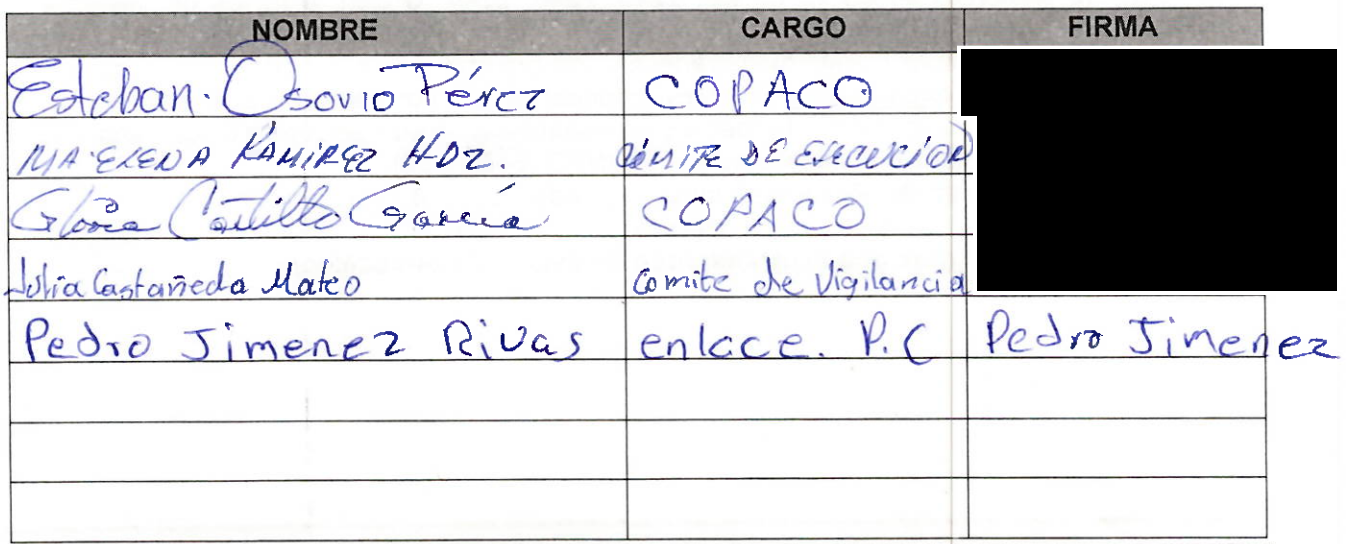 NOMBRE CARGO FIRMA
Esteban. Osorio Pérez COPACO
MA. ELENA RAMIREZ HDZ. COMITE DE EJECUCIÓN
Gloria Castillo García COPACO
Julia Castañeda Mateo Comite de Vigilancia
Pedro Jimenez Rivas enlace. P.C Pedro Jimenez